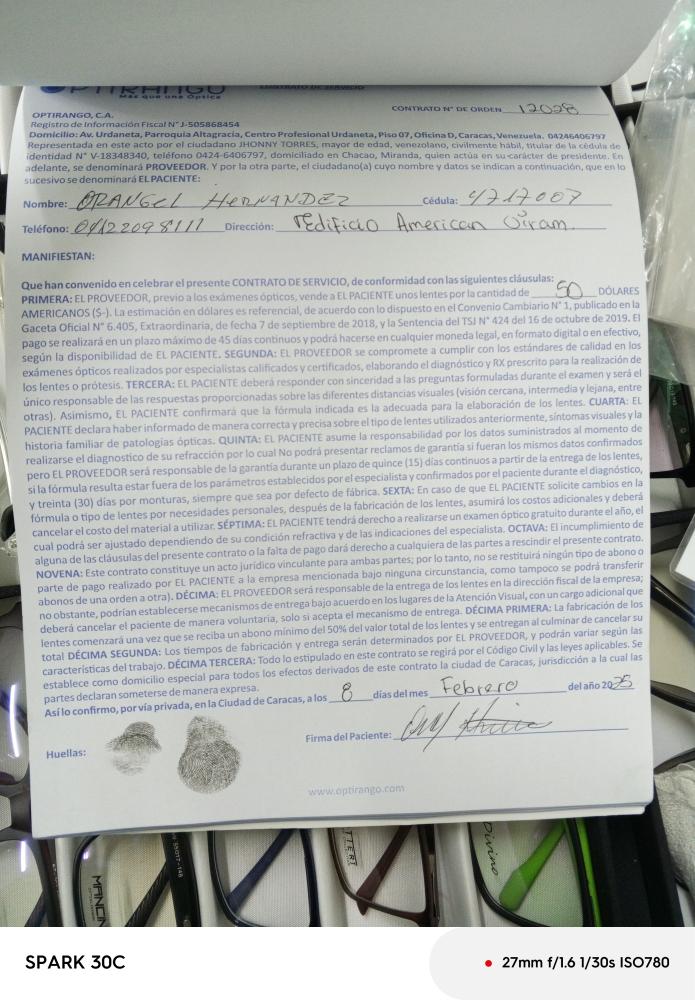 OPTIRANGO
Más que una Óptica
CONTRATO DE SERVICIO
CONTRATO N° DE ORDEN 12028
OPTIRANGO, C.A.
Registro de Información Fiscal N° J-505868454
Domicilio: Av. Urdaneta, Parroquia Altagracia, Centro Profesional Urdaneta, Piso 07, Oficina D, Caracas, Venezuela. 04246406797
Representada en este acto por el ciudadano JHONNY TORRES, mayor de edad, venezolano, civilmente hábil, titular de la cédula de
identidad N° V-18348340, teléfono 0424-6406797, domiciliado en Chacao, Miranda, quien actúa en su carácter de presidente. En
adelante, se denominará PROVEEDOR. Y por la otra parte, el ciudadano(a) cuyo nombre y datos se indican a continuación, que en lo
sucesivo se denominará EL PACIENTE:
Nombre: ORANGEL HERNANDEZ Cédula: 4717007
Teléfono: 04122098111 Dirección: Edificio American
MANIFIESTAN:
Que han convenido en celebrar el presente CONTRATO DE SERVICIO, de conformidad con las siguientes cláusulas:
PRIMERA: EL PROVEEDOR, previo a los exámenes ópticos, vende a EL PACIENTE unos lentes por la cantidad de 50 DÓLARES
AMERICANOS ($-). La estimación en dólares es referencial, de acuerdo con lo dispuesto en el Convenio Cambiario N° 1, publicado en la
Gaceta Oficial N° 6.405, Extraordinaria, de fecha 7 de septiembre de 2018, y la Sentencia del TSJ N° 424 del 16 de octubre de 2019. El
pago se realizará en un plazo máximo de 45 días continuos y podrá hacerse en cualquier moneda legal, en formato digital o en efectivo,
según la disponibilidad de EL PACIENTE. SEGUNDA: EL PROVEEDOR se compromete a cumplir con los estándares de calidad en los
exámenes ópticos realizados por especialistas calificados y certificados, elaborando el diagnóstico y RX prescrito para la realización de
los lentes o prótesis. TERCERA: EL PACIENTE deberá responder con sinceridad a las preguntas formuladas durante el examen y será el
único responsable de las respuestas proporcionadas sobre las diferentes distancias visuales (visión cercana, intermedia y lejana, entre
otras). Asimismo, EL PACIENTE confirmará que la fórmula indicada es la adecuada para la elaboración de los lentes. CUARTA: EL
PACIENTE declara haber informado de manera correcta y precisa sobre el tipo de lentes utilizados anteriormente, síntomas visuales y la
historia familiar de patologías ópticas. QUINTA: EL PACIENTE asume la responsabilidad por los datos suministrados al momento de
realizarse el diagnostico de su refracción por lo cual No podrá presentar reclamos de garantía si fueran los mismos datos confirmados
pero EL PROVEEDOR será responsable de la garantía durante un plazo de quince (15) días continuos a partir de la entrega de los lentes,
si la fórmula resulta estar fuera de los parámetros establecidos por el especialista y confirmados por el paciente durante el diagnóstico,
y treinta (30) días por monturas, siempre que sea por defecto de fábrica. SEXTA: En caso de que EL PACIENTE solicite cambios en la
fórmula o tipo de lentes por necesidades personales, después de la fabricación de los lentes, asumirá los costos adicionales y deberá
cancelar el costo del material a utilizar. SÉPTIMA: EL PACIENTE tendrá derecho a realizarse un examen óptico gratuito durante el año, el
cual podrá ser ajustado dependiendo de su condición refractiva y de las indicaciones del especialista. OCTAVA: El incumplimiento de
alguna de las cláusulas del presente contrato o la falta de pago dará derecho a cualquiera de las partes a rescindir el presente contrato.
NOVENA: Este contrato constituye un acto jurídico vinculante para ambas partes; por lo tanto, no se restituirá ningún tipo de abono o
parte de pago realizado por EL PACIENTE a la empresa mencionada bajo ninguna circunstancia, como tampoco se podrá transferir
abonos de una orden a otra). DÉCIMA: EL PROVEEDOR será responsable de la entrega de los lentes en la dirección fiscal de la empresa;
no obstante, podrían establecerse mecanismos de entrega bajo acuerdo en los lugares de la Atención Visual, con un cargo adicional que
deberá cancelar el paciente de manera voluntaria, solo si acepta el mecanismo de entrega. DÉCIMA PRIMERA: La fabricación de los
lentes comenzará una vez que se reciba un abono mínimo del 50% del valor total de los lentes y se entregan al culminar de cancelar su
total DÉCIMA SEGUNDA: Los tiempos de fabricación y entrega serán determinados por EL PROVEEDOR, y podrán variar según las
características del trabajo. DÉCIMA TERCERA: Todo lo estipulado en este contrato se regirá por el Código Civil y las leyes aplicables. Se
establece como domicilio especial para todos los efectos derivados de este contrato la ciudad de Caracas, jurisdicción a la cual las
partes declaran someterse de manera expresa.
Así lo confirmo, por vía privada, en la Ciudad de Caracas, a los 8 días del mes Febrero del año 2025
Huellas: Firma del Paciente:
www.optirango.com
Divino
SPARK 30C
27mm f/1.6 1/30s ISO780